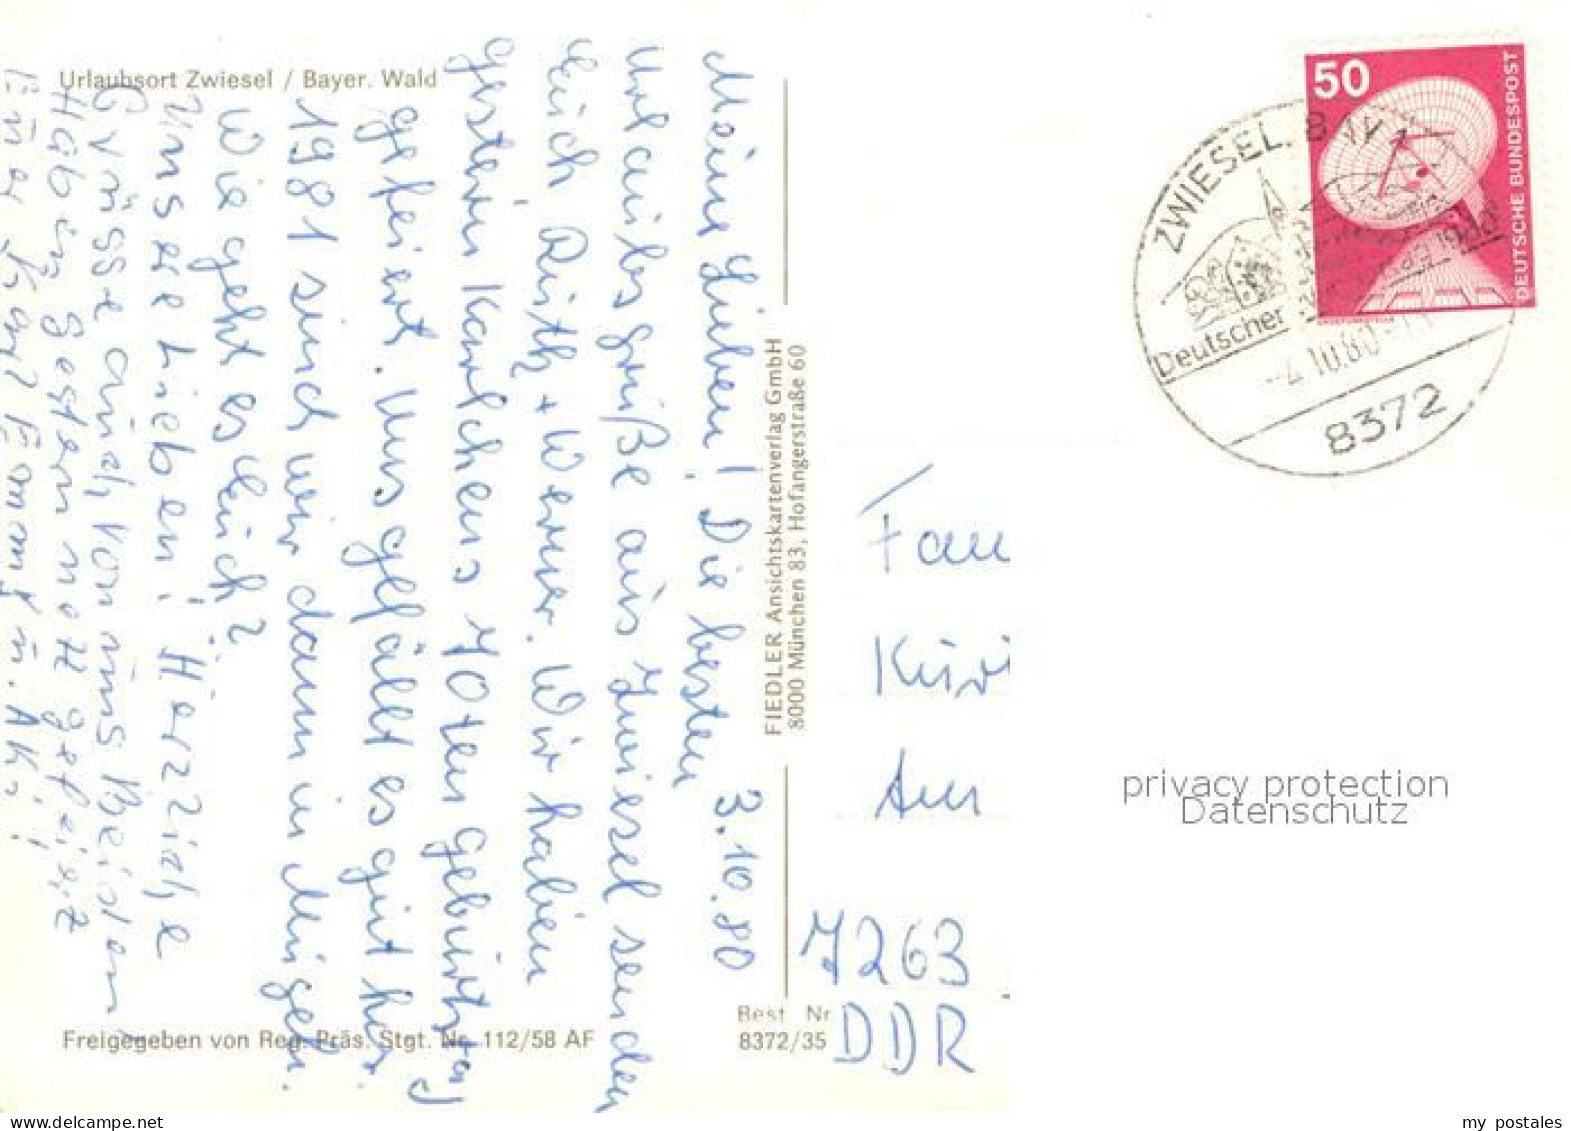 Urlaubsort Zwiesel / Bayer. Wald
3.10.80
Meine Lieben! Die besten
Urlaubsgrüße aus Zwiesel senden
Euch Ruth + Werner. Wir haben
gestern Karlchens 70ten Geburtstag
gefeiert. Uns gefällt es gut hier.
1981 sind wir dann in Mügeln.
Wie geht es Euch?
Unsere Lieben! Herzliche
Grüsse auch von uns Beiden
Haben gestern nett gefeiert
Karl
FIEDLER Ansichtskartenverlag GmbH
8000 München 83, Hofangerstraße 60
Freigegeben von Reg. Präs. Stgt. Nr. 112/58 AF
Best Nr
8372/35
50
DEUTSCHE BUNDESPOST
ZWIESEL, BAY 1
Deutscher
-4.10.80
8372
Fam
7263
DDR
privacy protection
Datenschutz
my postales